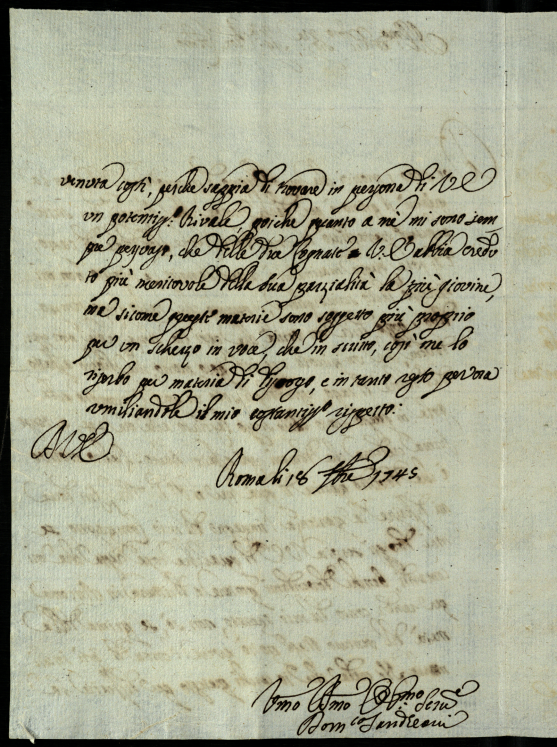 venuta costì, perche sappia di trovare in persona di V E
un potentiss.o Rivale poiche quanto a me mi sono sem-
pre persuaso, che delle due Cognate V. E abbia credu
to più meritevole della sua parzialità la più giovine,
ma sicome queste materie sono soggetto più proprio
per un scherzo in voce, che in scritto, così me lo
riserbo per materia di discorso, e in tanto resto per ora
umiliandole il mio costantiss.o rispetto.
D V E
Roma li 18 7bre 1745
Umo Dmo Obmo Serv.e
Dom.co